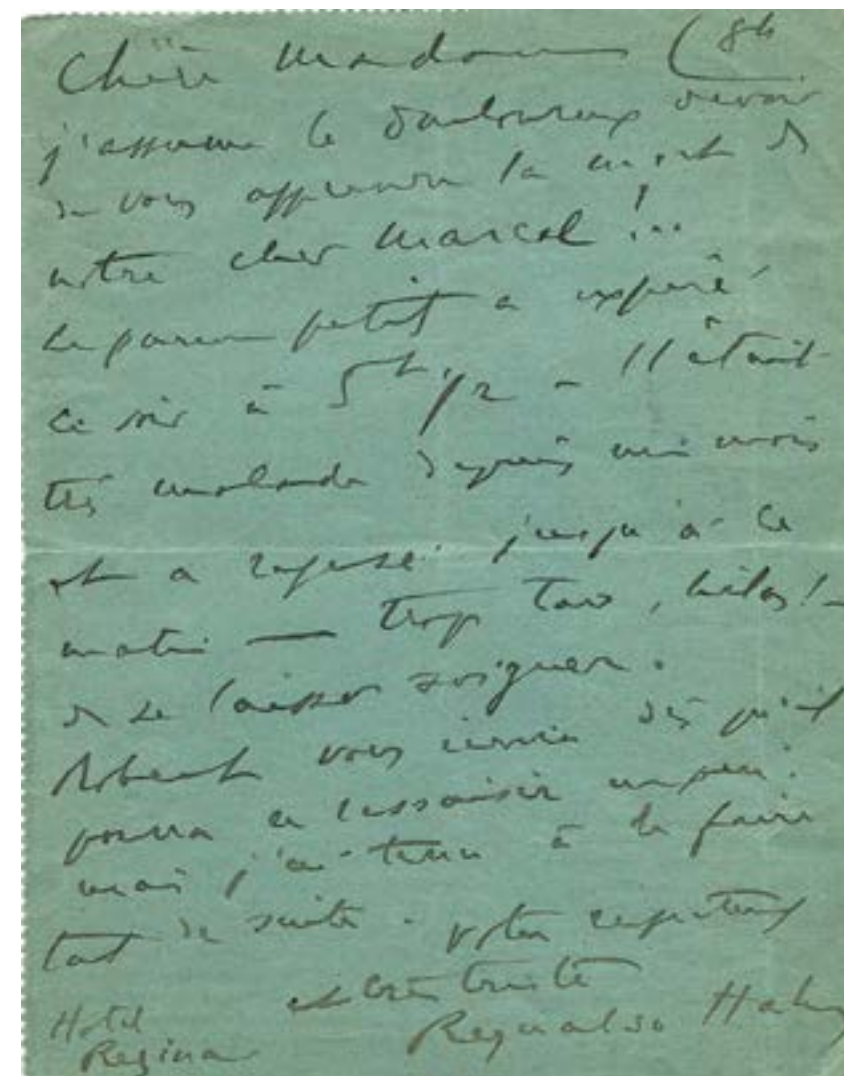 Chère Madame (8h
j'assume le douloureux devoir
de vous apprendre la mort de
notre cher Marcel !..
Le pauvre petit a expiré
ce soir à 5h 1/2 – Il était
très malade depuis un mois
et a refusé jusqu'à ce
matin — trop tard, hélas ! –
de se laisser soigner.
Robert vous écrira dès qu'il
pourra se ressaisir un peu.
mais j'ai tenu à le faire
tout de suite. Votre respectueux
et très triste
Reynaldo Hahn
Hotel
Regina